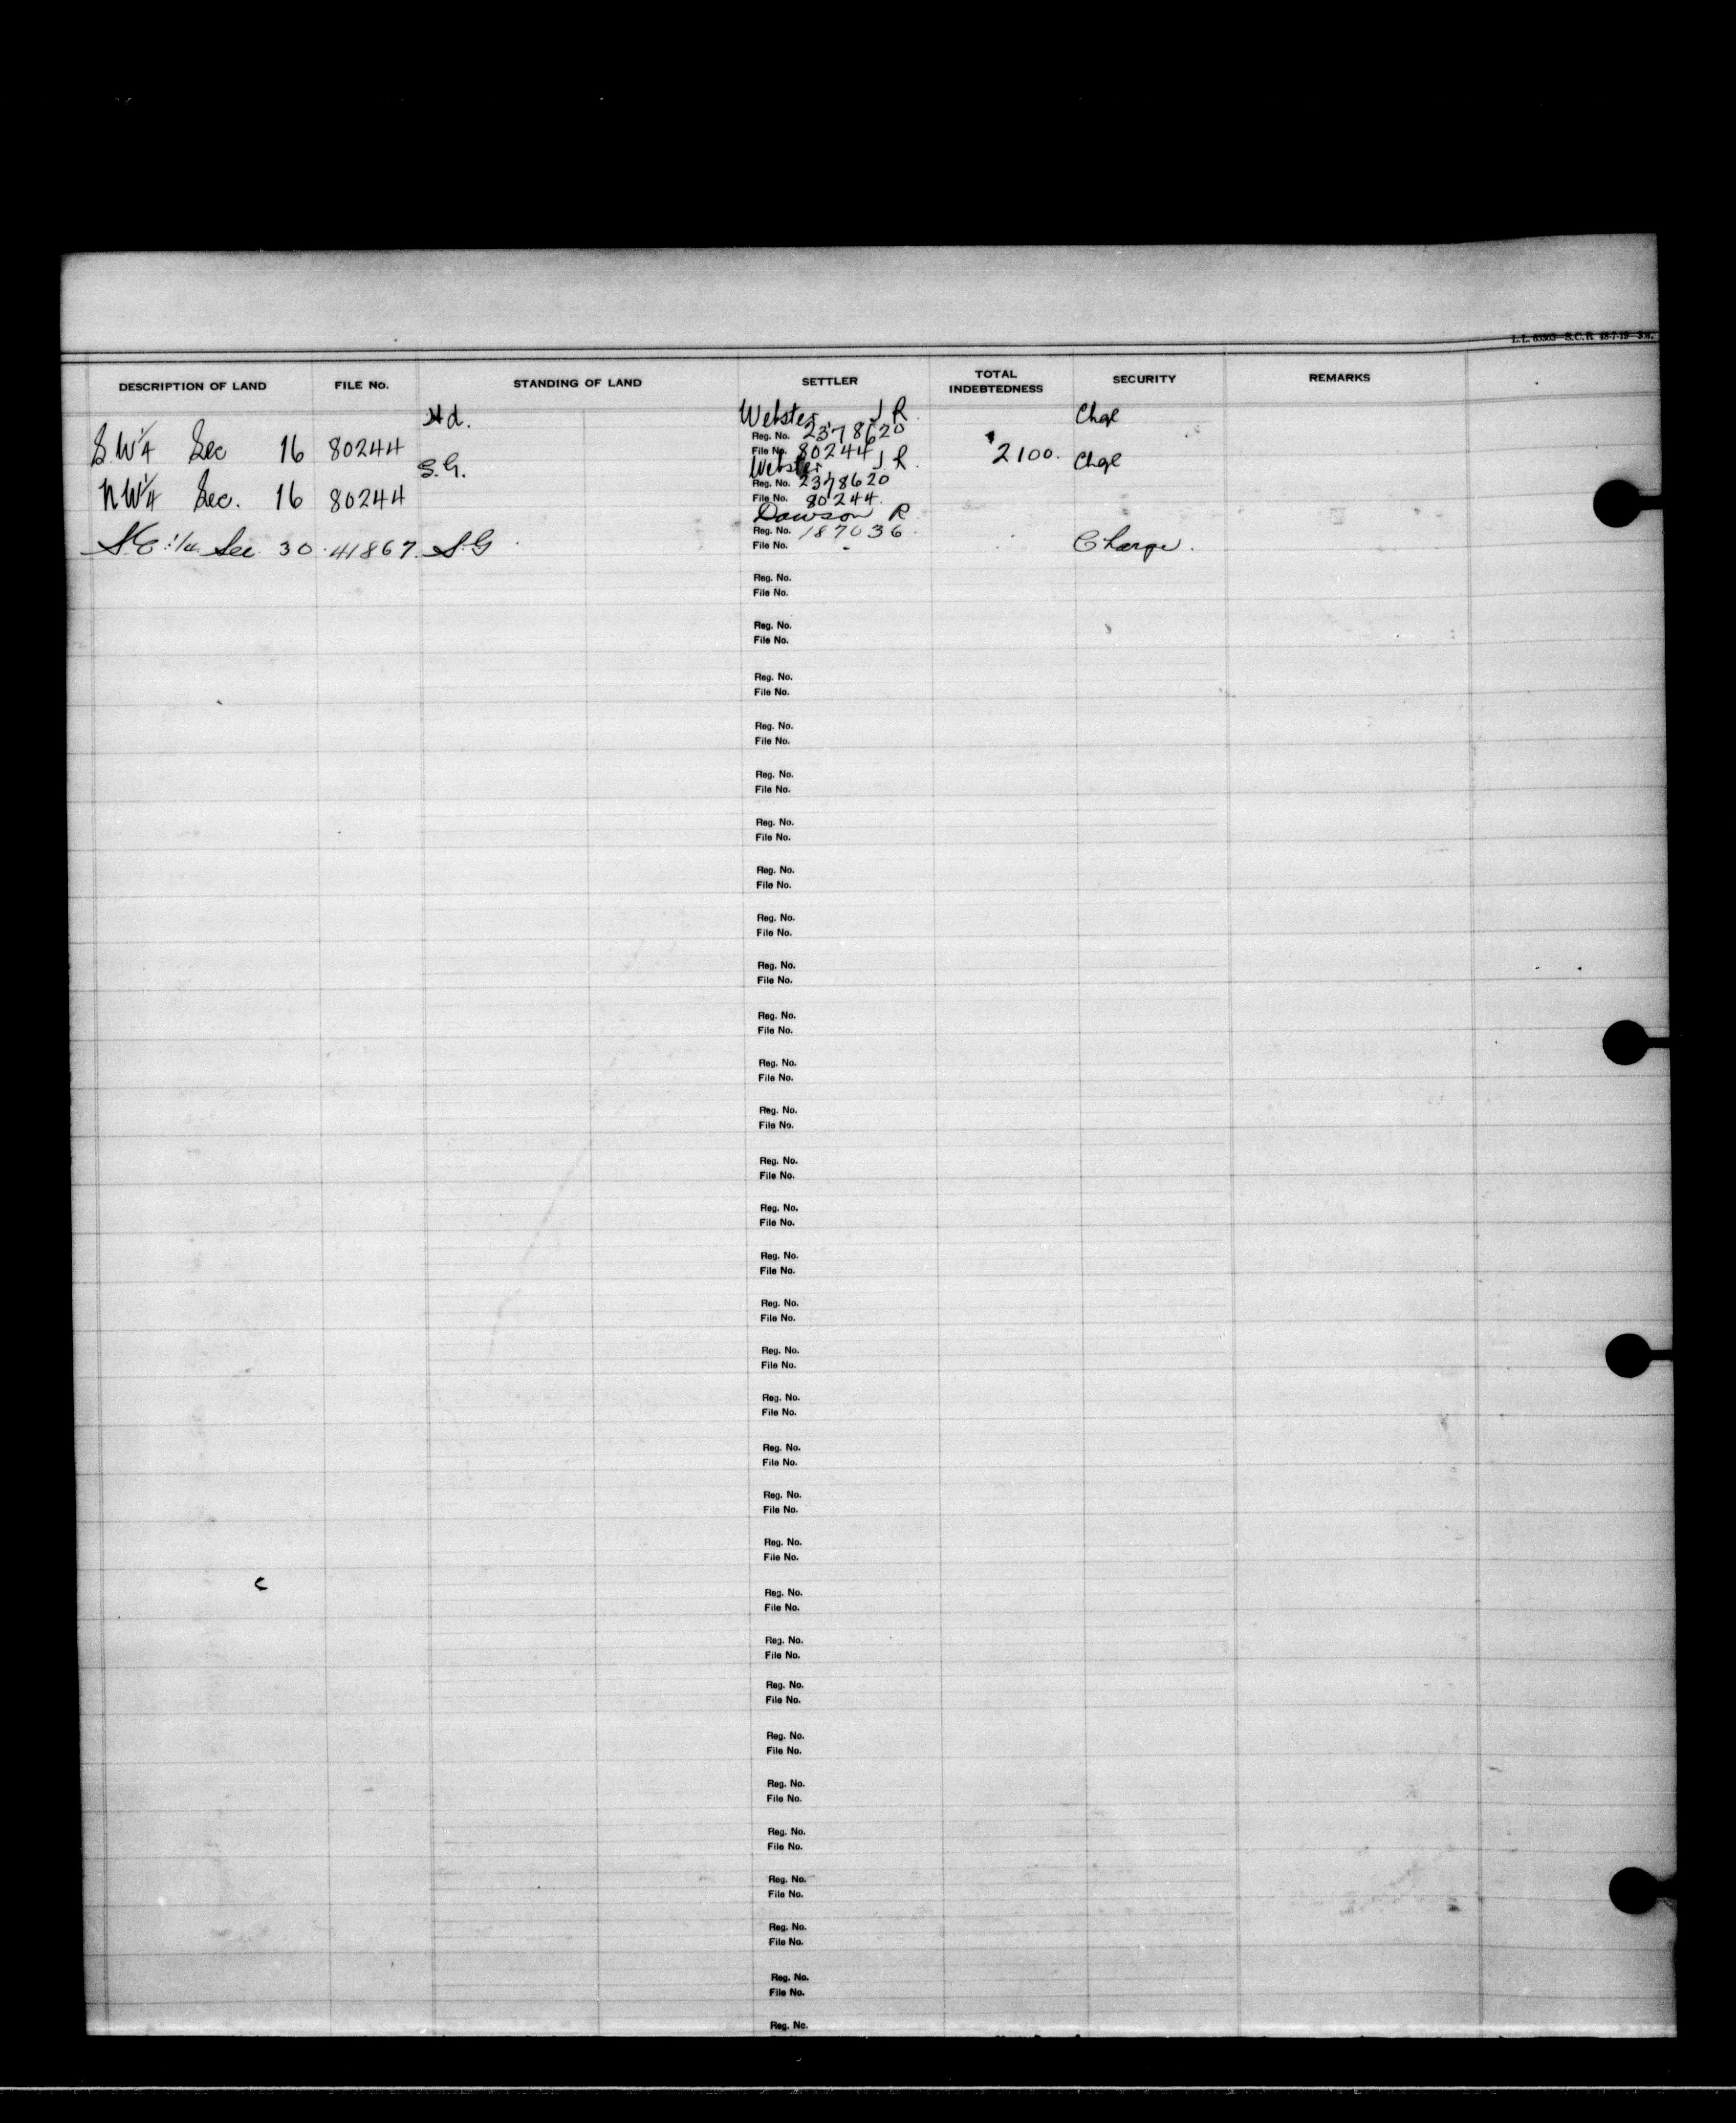 L.L. 63305—S.C.R. 48-7-19—3M.
DESCRIPTION OF LAND FILE No. STANDING OF LAND SETTLER TOTAL INDEBTEDNESS SECURITY REMARKS
Hd. Webster J R Chge
Reg. No. 2378620
S.W¼ Sec 16 80244 File No. 80244 2100.
S.G. Webster J R. Chge
Reg. No. 2378620
N W¼ Sec. 16 80244 File No. 80244.
Dawson R.
Reg. No. 187036.
¼ Sec 30. 41867. S.G File No. Charge.
Reg. No.
File No.
Reg. No.
File No.
Reg. No.
File No.
Reg. No.
File No.
Reg. No.
File No.
Reg. No.
File No.
Reg. No.
File No.
Reg. No.
File No.
Reg. No.
File No.
Reg. No.
File No.
Reg. No.
File No.
Reg. No.
File No.
Reg. No.
File No.
Reg. No.
File No.
Reg. No.
File No.
Reg. No.
File No.
Reg. No.
File No.
Reg. No.
File No.
Reg. No.
File No.
Reg. No.
File No.
Reg. No.
File No.
Reg. No.
File No.
Reg. No.
File No.
Reg. No.
File No.
Reg. No.
File No.
Reg. No.
File No.
Reg. No.
File No.
Reg. No.
File No.
Reg. No.
File No.
Reg. No.
File No.
Reg. No.